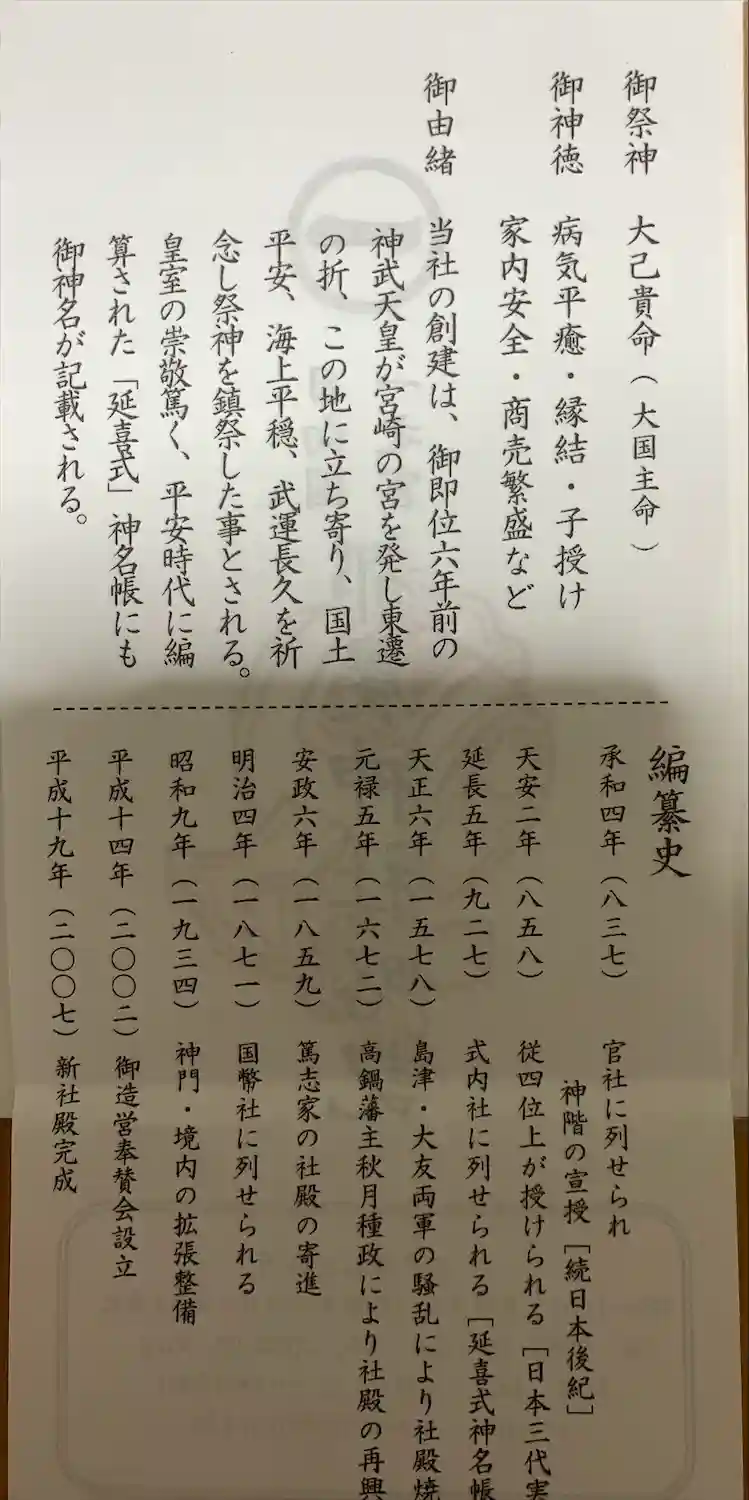 御祭神 大己貴命（大国主命）
御神徳 病気平癒・縁結・子授け
家内安全・商売繁盛など
御由緒 当社の創建は、御即位六年前の
神武天皇が宮崎の宮を発し東遷
の折、この地に立ち寄り、国土
平安、海上平穏、武運長久を祈
念し祭神を鎮祭した事とされる。
皇室の崇敬篤く、平安時代に編
算された「延喜式」神名帳にも
御神名が記載される。
編纂史
承和四年（八三七） 官社に列せられ
神階の宣授［続日本後紀］
天安二年（八五八） 従四位上が授けられる［日本三代実
延長五年（九二七） 式内社に列せられる［延喜式神名帳
天正六年（一五七八） 島津・大友両軍の騒乱により社殿焼
元禄五年（一六七二） 高鍋藩主秋月種政により社殿の再興
安政六年（一八五九） 篤志家の社殿の寄進
明治四年（一八七一） 国幣社に列せられる
昭和九年（一九三四） 神門・境内の拡張整備
平成十四年（二〇〇二） 御造営奉賛会設立
平成十九年（二〇〇七） 新社殿完成